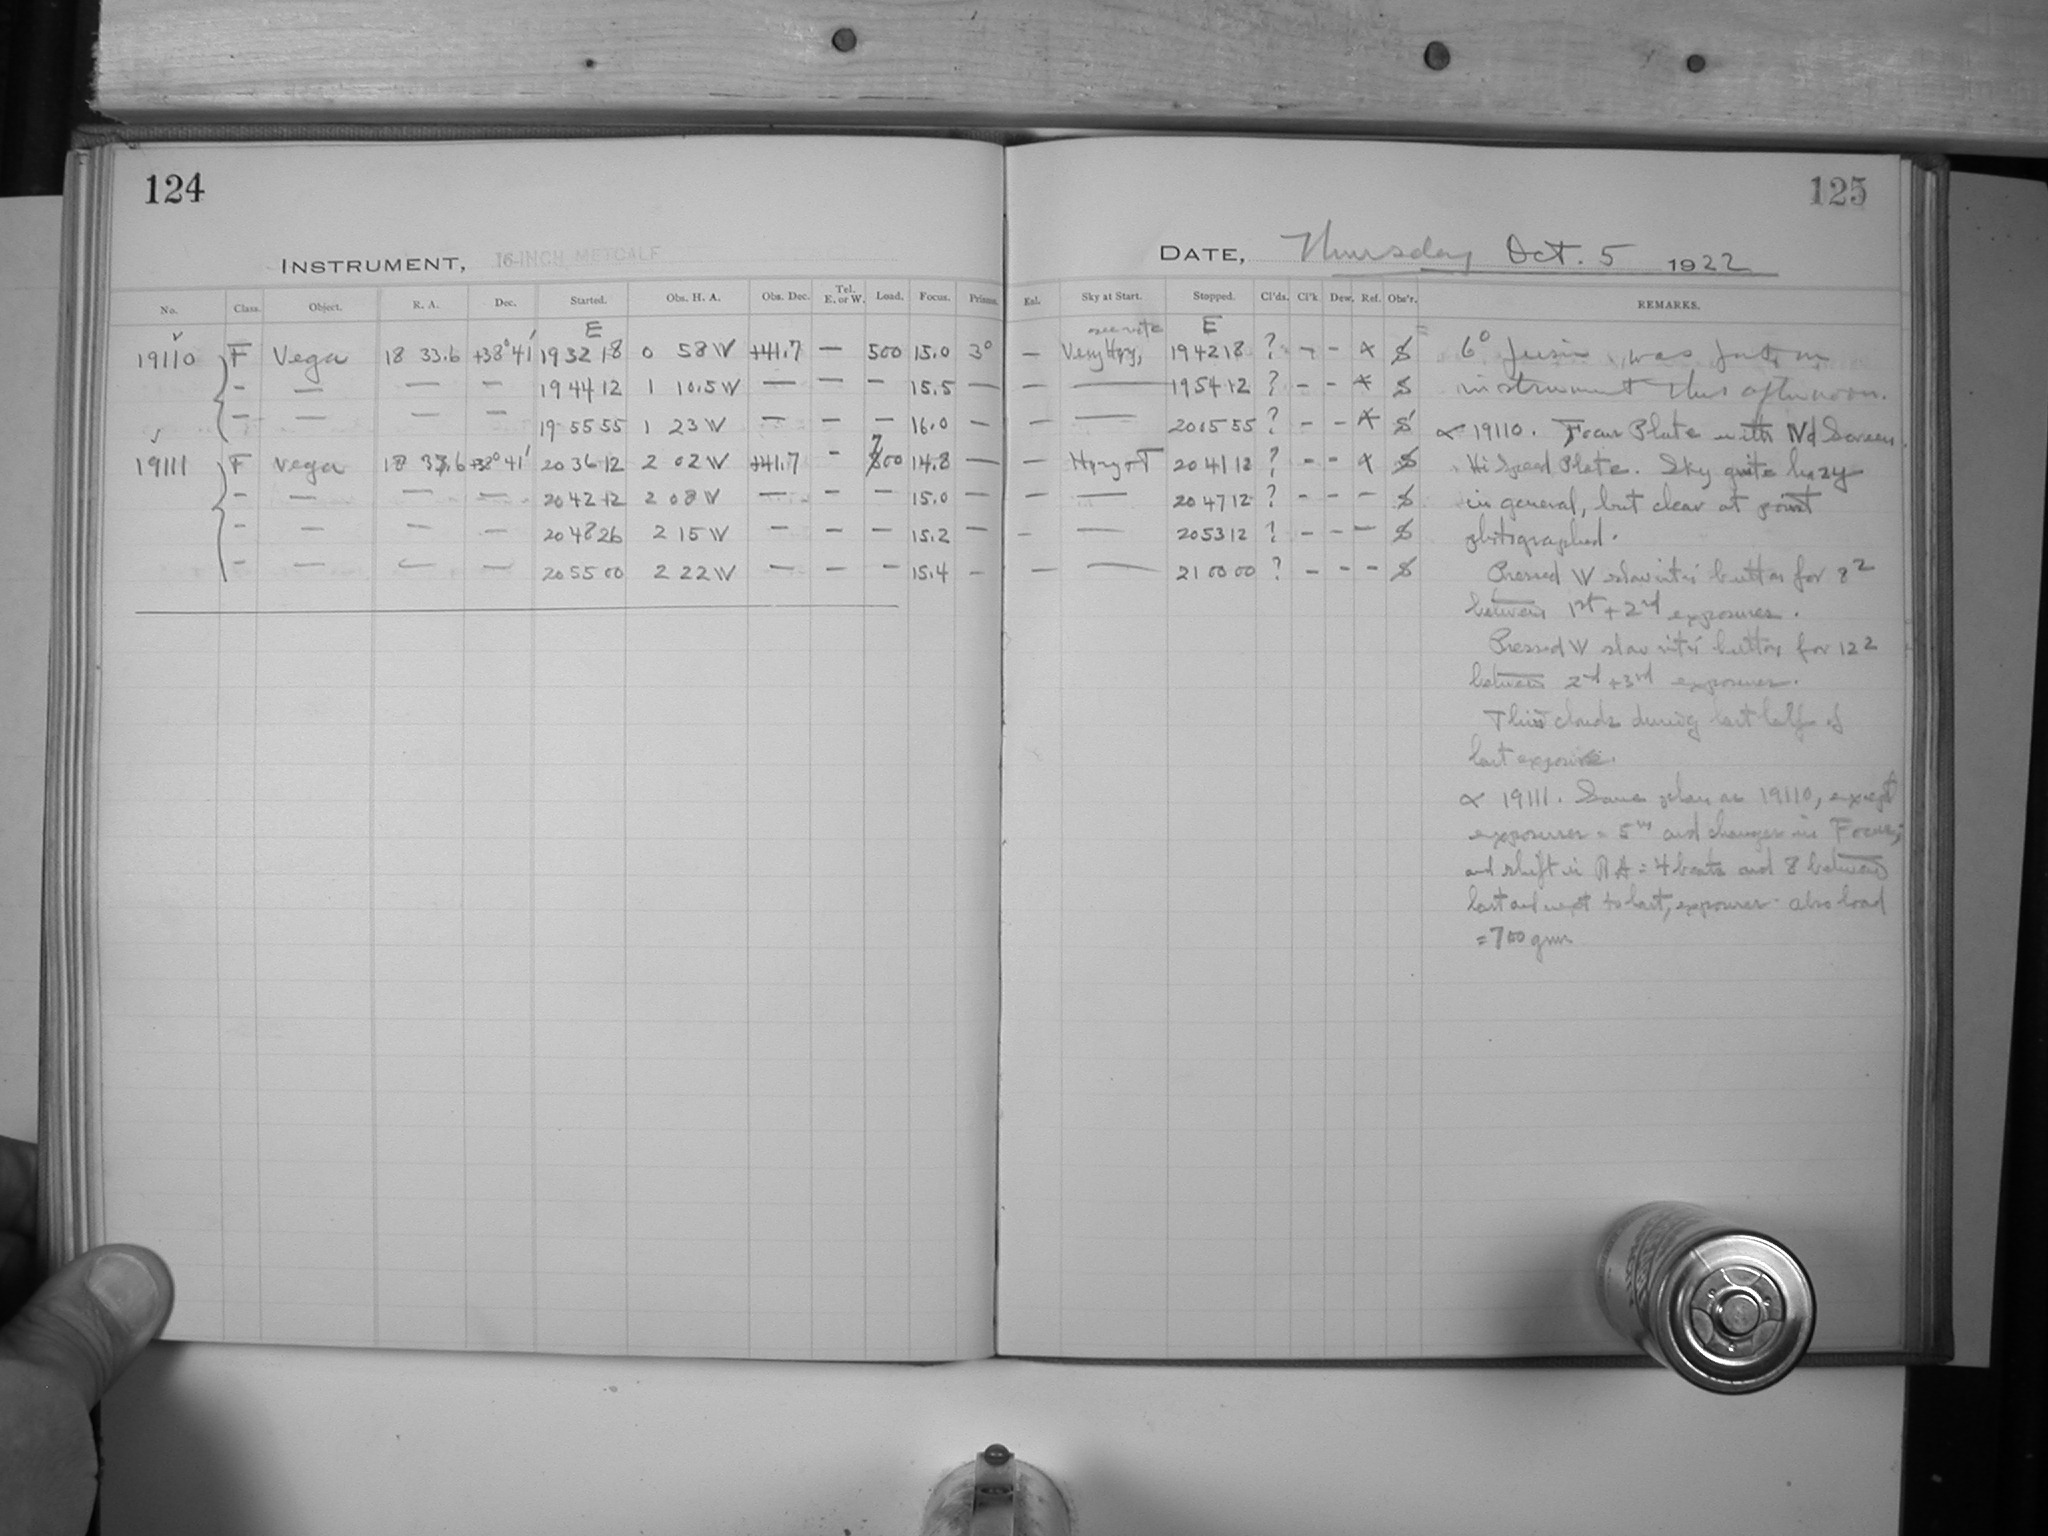 124
125
INSTRUMENT, 16-INCH METCALF
DATE, Thursday Oct. 5 1922
No. Class. Object. R. A. Dec. Started. Obs. H. A. Obs. Dec. Tel. E. or W. Load. Focus. Prisms.
Sky at Start. Stopped. Cl'ds. Cl'k. Dew. Ref. Obs'r. REMARKS.
E
see note E
19110 F Vega 18 33.6 +38° 41' 19 32 18 0 58 W +41.7 — 500 15.0 3° — Very Hzy, 19 42 18 ? - - x $
— — — — 19 44 12 1 10.5 W — — — 15.5 — — — 19 54 12 ? - - x $
— — — — 19 55 55 1 23 W — — — 16.0 — — — 20 05 55 ? - - x $
19111 F Vega 18 33.6 +38° 41' 20 36 12 2 02 W +41.7 - 700 14.8 — — 20 41 12 ? - - x $
- — — — 20 42 12 2 08 W — — — 15.0 — — — 20 47 12 ? - - - $
- — — — 20 48 26 2 15 W — — — 15.2 — - — 20 53 12 ? - - - $
- — — — 20 55 00 2 22 W — — — 15.4 - — — 21 00 00 ? - - - $
6° was put on
instrument this afternoon.
19110. Focus Plate with Screen.
Hi Speed Plate. Sky quite hazy
in general, but clear at point
photographed.
Pressed W button for 8
between 1st + 2nd exposures.
Pressed W button for 12
between 2nd + 3rd exposures.
Thin clouds during last half of
last exposure.
19111. Same plan as 19110, except
exposures = 5m and changes in Focus,
and shift in RA = 4 beats and 8 between
last and next to last, exposures also load
= 700 gms